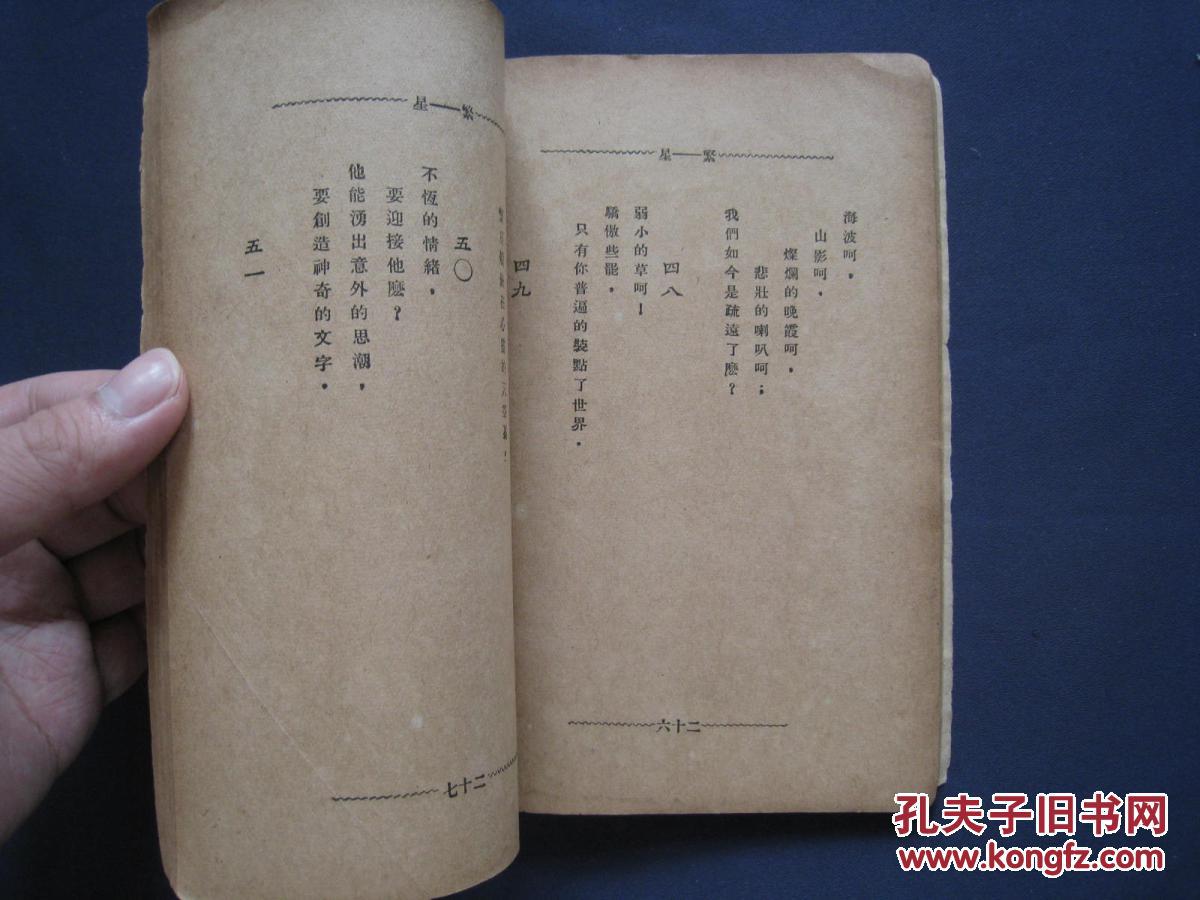 繁——星
海波呵，
山影呵，
燦爛的晚霞呵，
悲壯的喇叭呵；
我們如今是疏遠了麽？
四八
弱小的草呵！
驕傲些罷，
只有你普遍的裝點了世界．
四九
二十六
繁——星
五〇
不恆的情緒，
要迎接他麽？
他能湧出意外的思潮，
要創造神奇的文字．
五一
二十七
孔夫子旧书网
www.kongfz.com